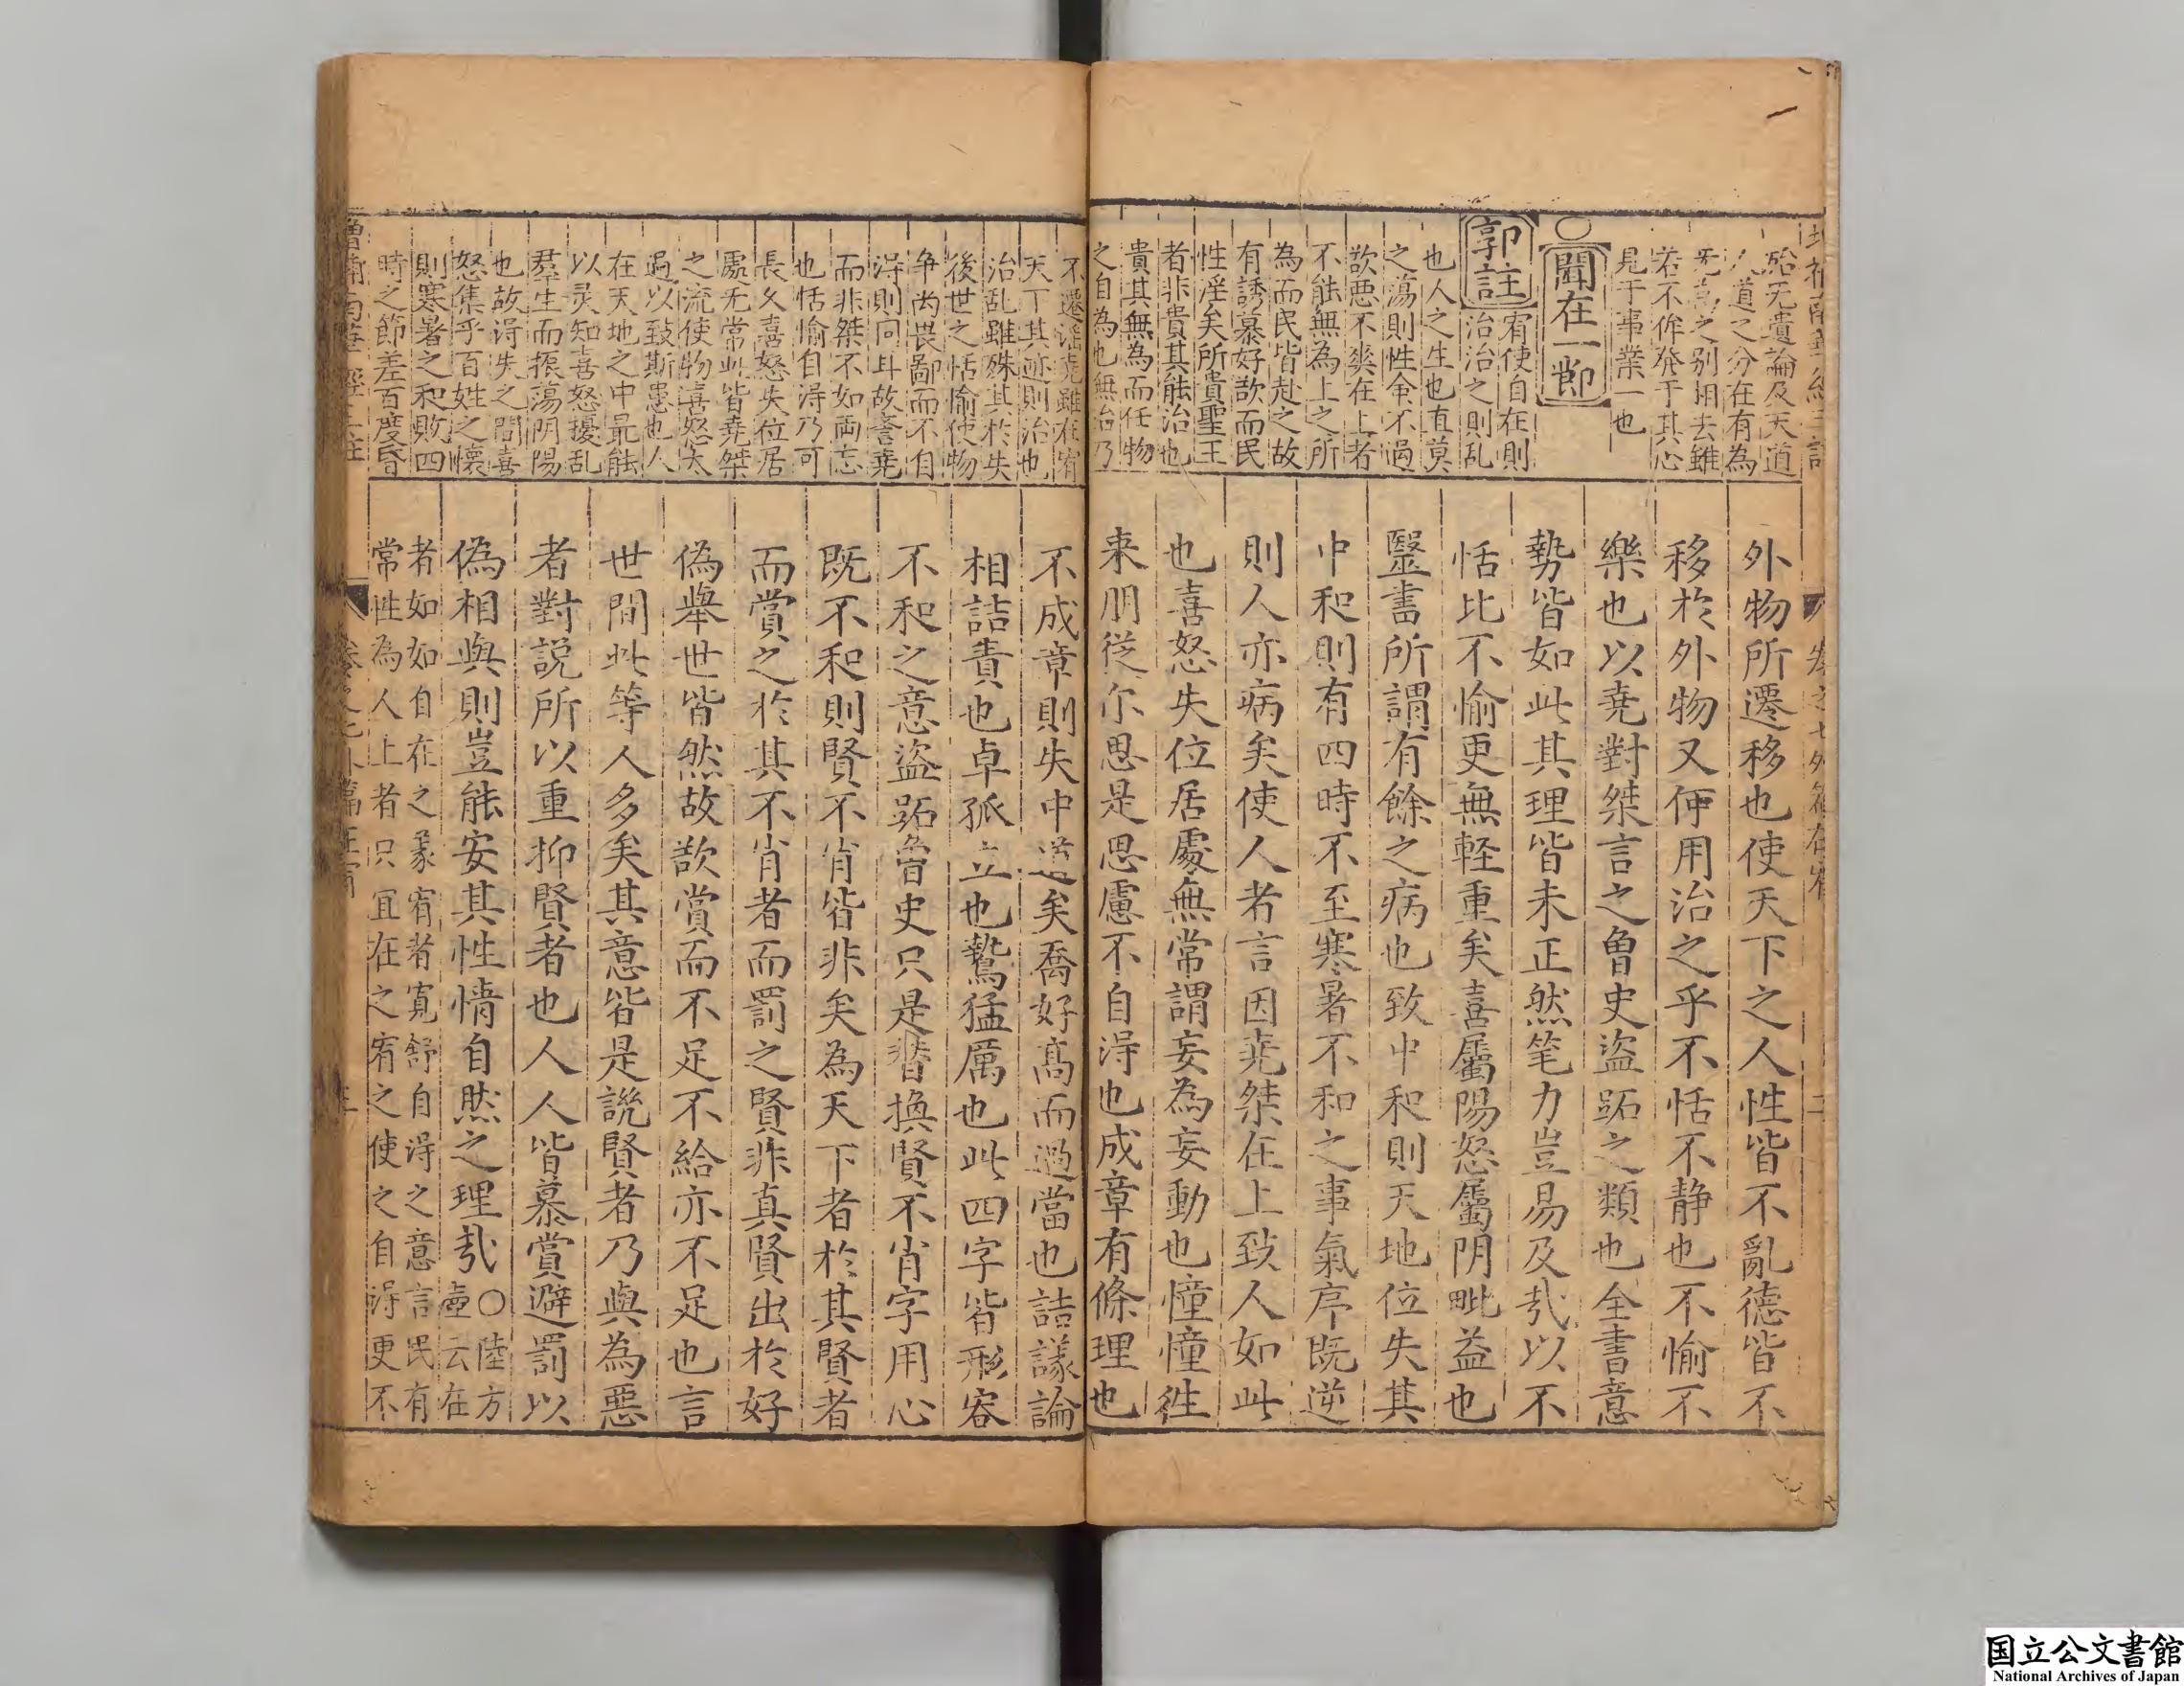 殆无遺論及天道
人道之分在有為
无為之别用去雖
若不侔發于其心
見于事業一也
○聞在一節
郭註
宥使自在則
治治之則乱
也人之生也直莫
之蕩則性命不過
欲悪不爽在上者
不能無為上之所
為而民皆赴之故
有誘慕好欲而民
性淫矣所貴聖王
者非貴其能治也
貴其無為而任物
之自為也無治乃
外物所遷移也使天下之人性皆不亂德皆不
移於外物又何用治之乎不恬不静也不愉不
樂也以堯對桀言之魯史盗跖之類也全書意
勢皆如此其理皆未正然笔力豈易及㦲以不
恬比不愉更無軽重矣喜屬陽怒屬阴毗益也
毉書所謂有餘之病也致中和則天地位失其
中和則有四時不至寒暑不和之事氣序既逆
則人亦病矣使人者言因堯桀在上致人如此
也喜怒失位居處無常謂妄為妄動也憧憧徃
来朋從尔思是思慮不自淂也成章有條理也
不遷淫堯雖在宥
天下其迹則治也
治乱雖殊其於失
後世之恬愉使物
争尚畏鄙而不自
淂則同耳故誉堯
而非桀不如両忘
也恬愉自淂乃可
長久喜怒失位居
處无常此皆堯桀
之流使物喜怒太
過以致斯患也人
在天地之中最能
以灵知喜怒擾乱
羣生而振蕩阴陽
也故淂失之間喜
怒集乎百姓之懐
則寒暑之和敗四
時之節差百度昏
不成章則失中道矣喬好髙而過當也詰議論
相詰責也卓孤立也鷙猛厲也此四字皆形容
不和之意盗跖魯史只是替換賢不肖字用心
既不和則賢不肖皆非矣為天下者於其賢者
而賞之於其不肖者而罰之賢非真賢出於好
偽舉世皆然故欲賞而不足不給亦不足也言
世間此等人多矣其意皆是説賢者乃與為惡
者對説所以重抑賢者也人人皆慕賞避罰以
偽相與則豈能安其性情自然之理㦲○陸方
壺云在
者如如自在之彖宥者寛舒自淂之意言民有
常性為人上者只宜在之宥之使之自淂更不